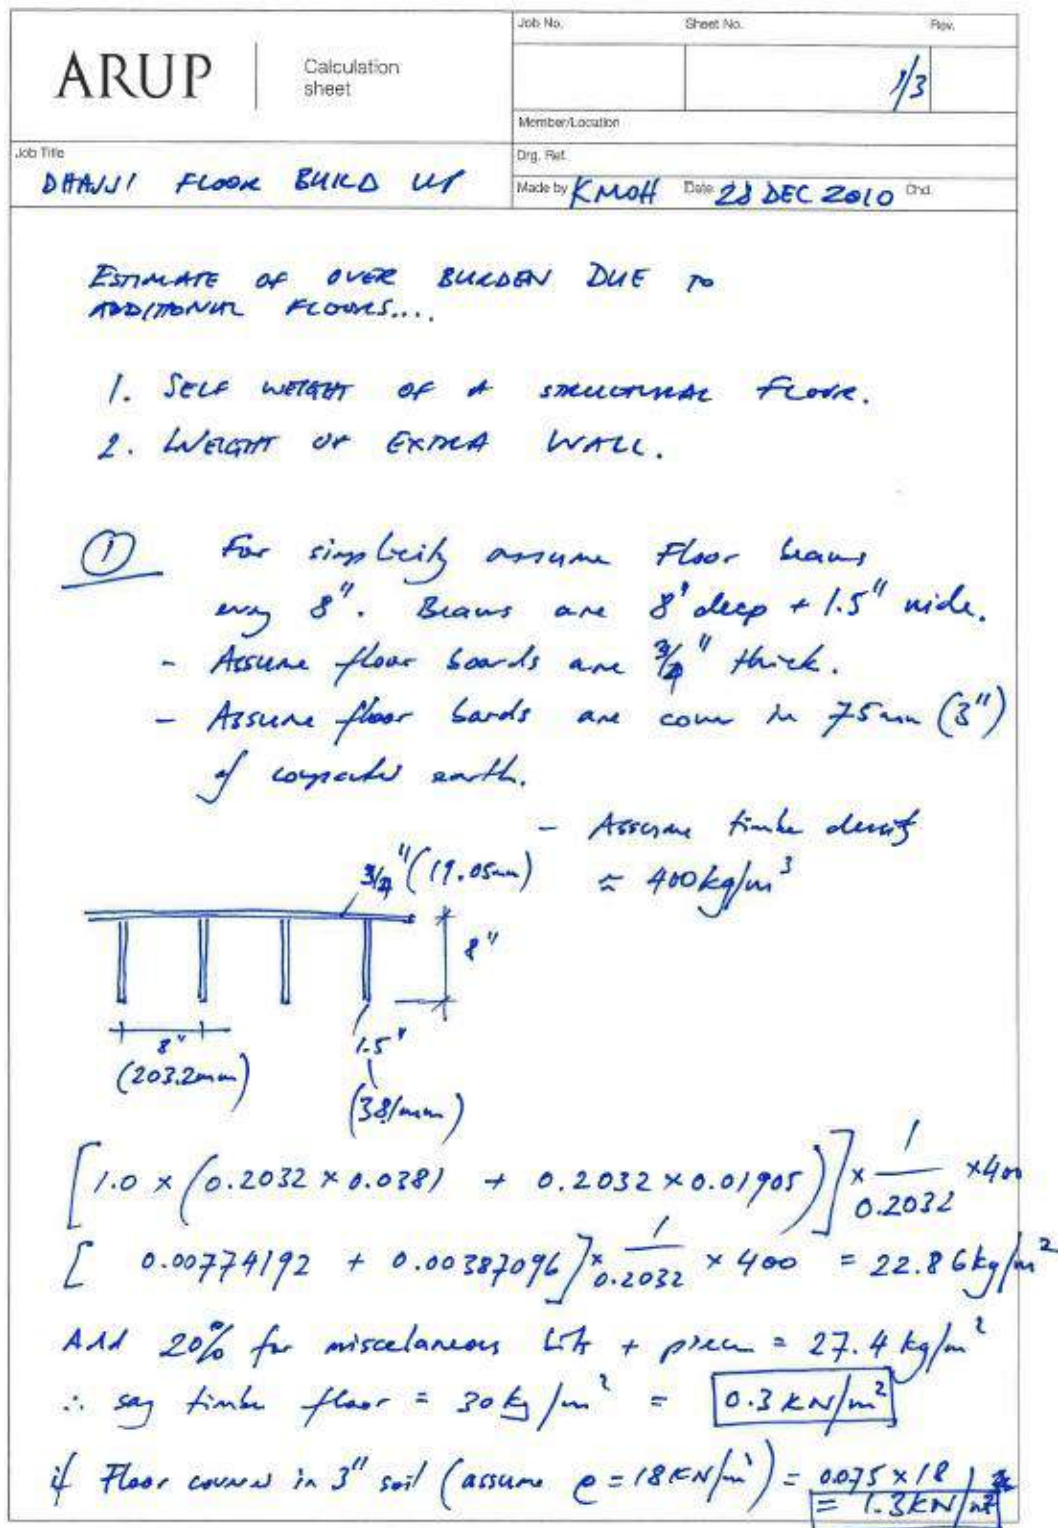 ARUP
Calculation
sheet
Job No.
Sheet No.
Rev.
1/3
Member/Location
Job Title
DHAJJI FLOOR BUILD UP
Drg. Ref.
Made by KMOH Date 28 DEC 2010 Chd.
ESTIMATE OF OVER BURDEN DUE TO
ADDITIONAL FLOORS....
1. SELF WEIGHT OF A STRUCTURAL FLOOR.
2. WEIGHT OF EXTRA WALL.
① For simplicity assume Floor beams
every 8". Beams are 8" deep + 1.5" wide.
- Assume floor boards are 3/4" thick.
- Assume floor bards are cover in 75mm (3")
of compacted earth.
- Assume timber density
≈ 400kg/m³
3/4" (19.05mm)
8"
8"
(203.2mm)
1.5"
(38.1mm)
[1.0 × (0.2032 × 0.0381 + 0.2032 × 0.01905)] × 1/0.2032 ×400
[ 0.00774192 + 0.00387096] × 1/0.2032 × 400 = 22.86kg/m²
Add 20% for miscelaneous bits + pieces = 27.4 kg/m²
∴ say timber floor = 30kg/m² = 0.3 KN/m²
if Floor covered in 3" soil (assume ρ = 18KN/m³) = 0.075 × 18
= 1.3KN/m²